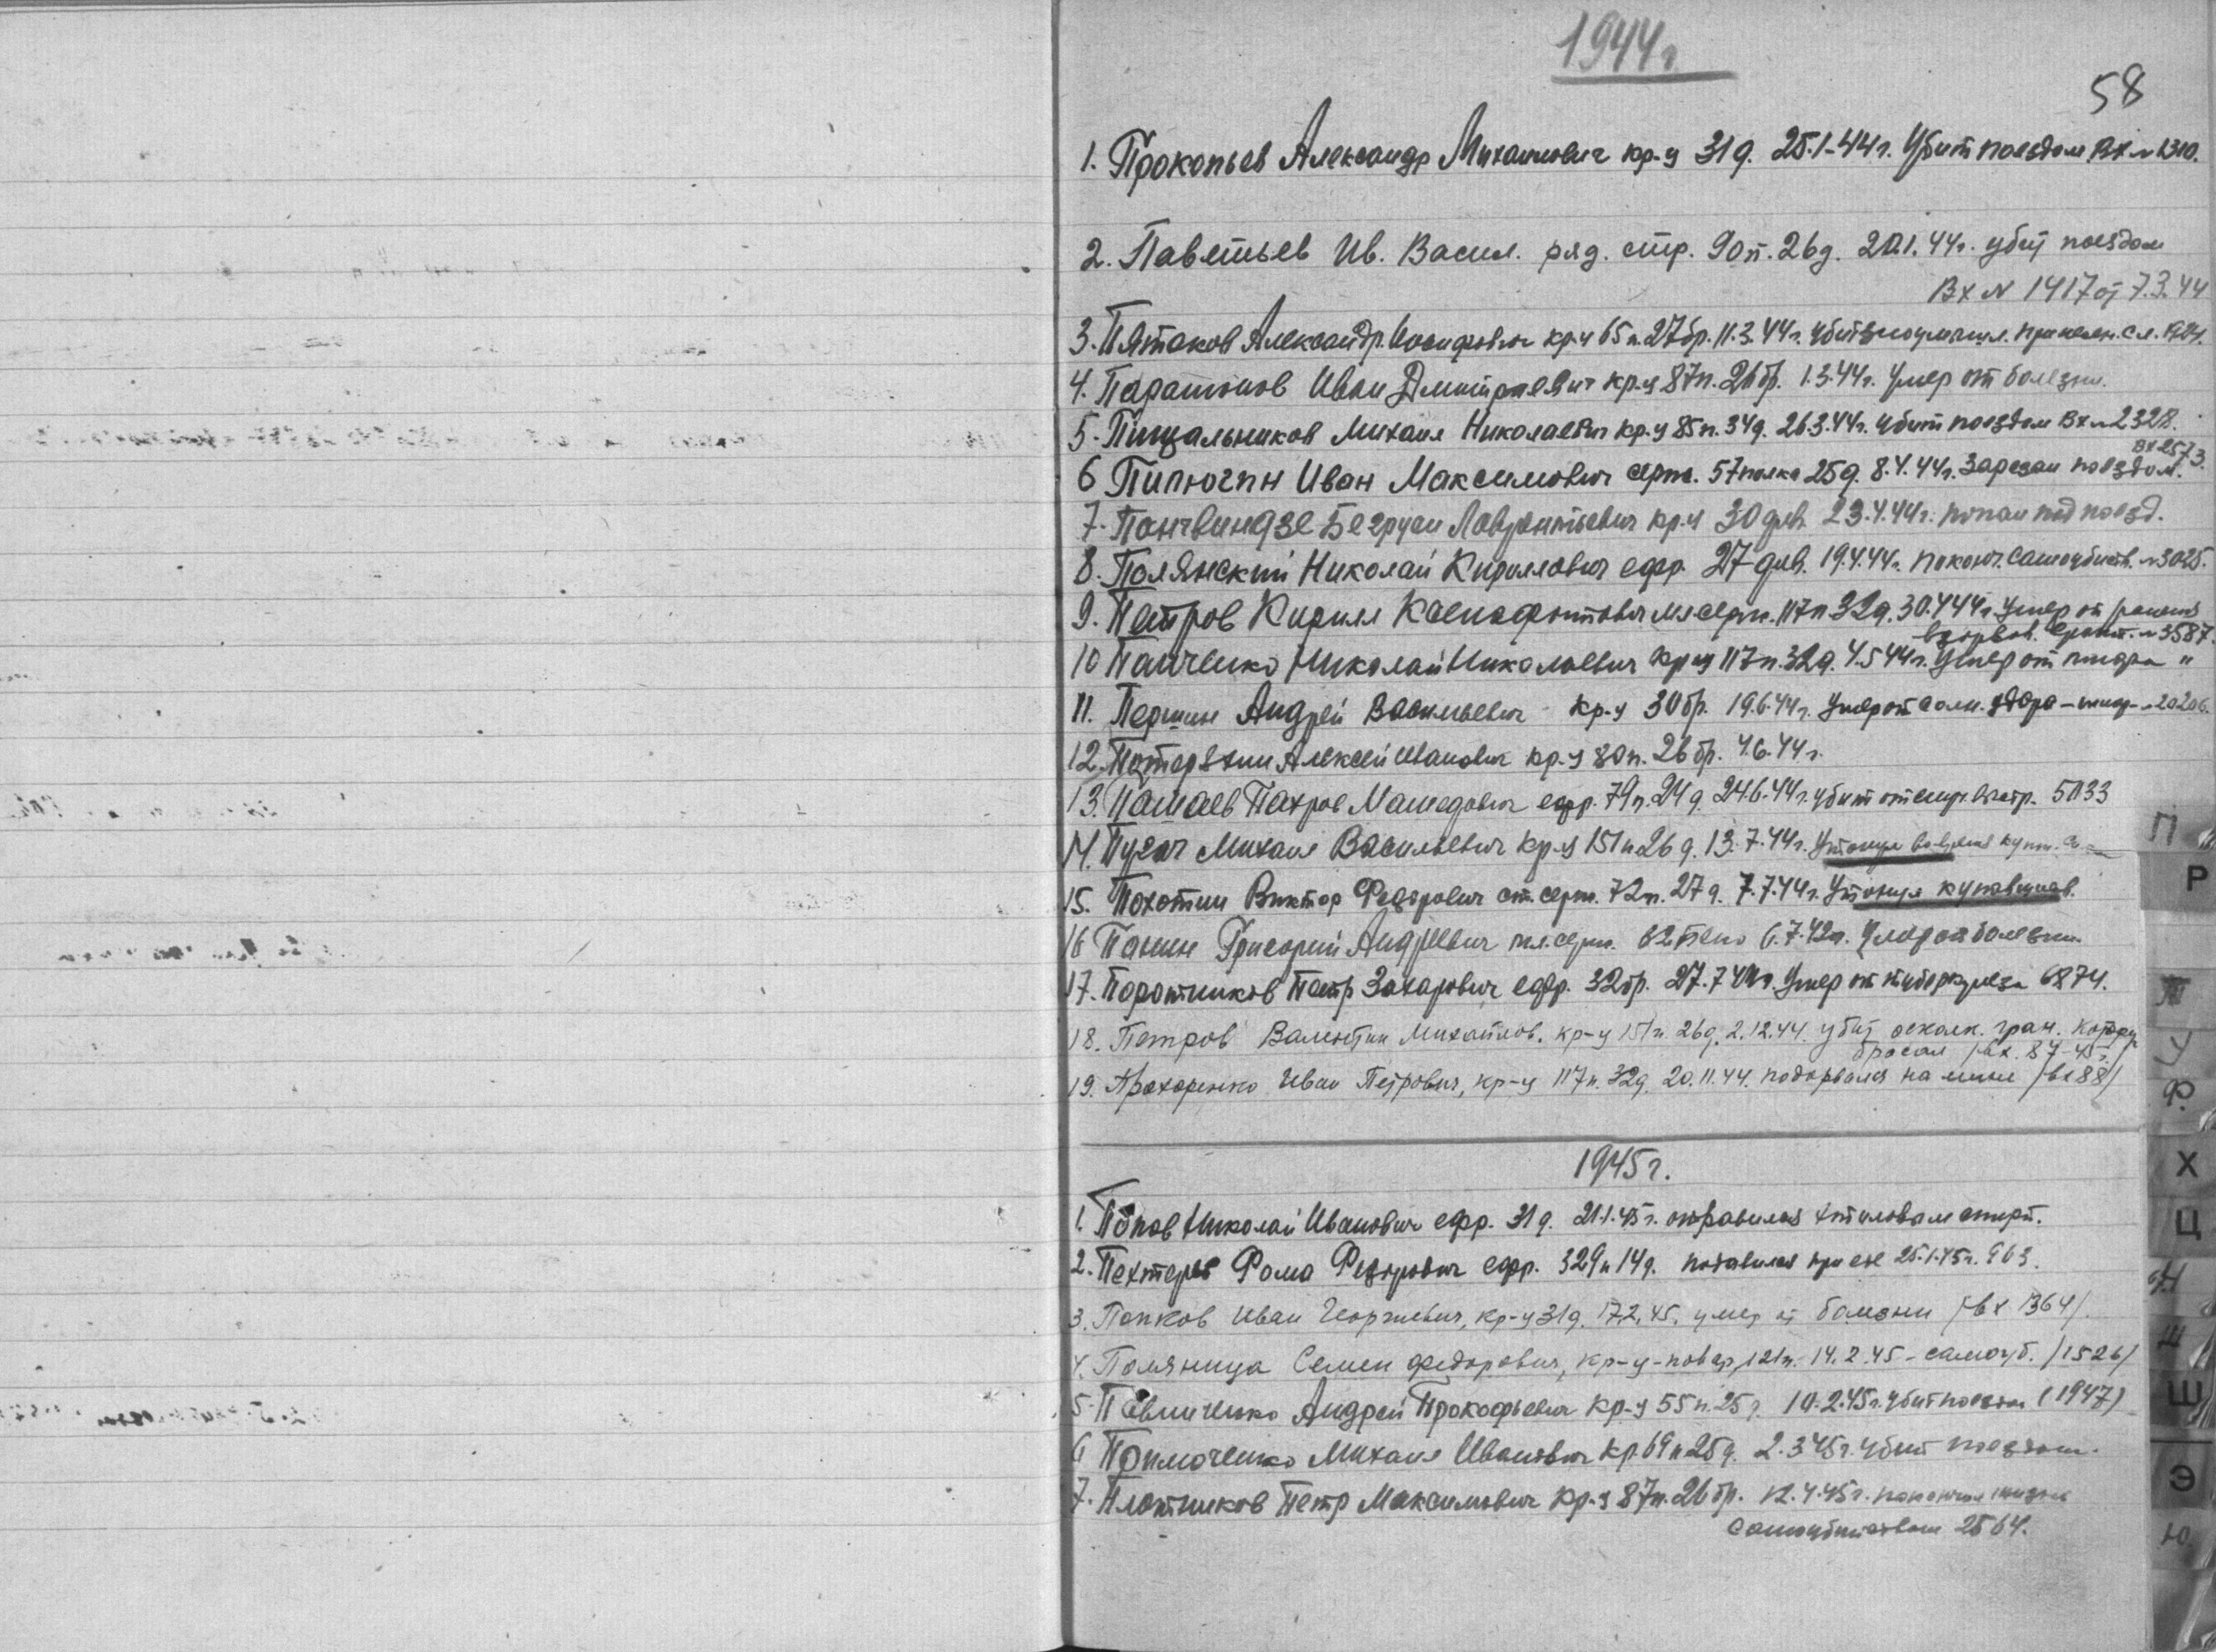 1944г.
58
1. Прокопьев Александр Михайлович кр-ц 31д. 25.1-44г. Убит поездом Вх № 1310.
2. Паветьев Ив. Васил. ряд. стр. 90п. 26д. 20.1.44г. убит поездом
Вх № 1417 от 7.3.44
3. Пятаков Александр Иосифович кр-ц 65п. 27бр. 11.3.44г. убит
4. Парамонов Иван Дмитриевич кр-ц 87п. 26бр. 1.3.44г. Умер от болезни.
5. Пищальников Михаил Николаевич кр-ц 85п. 34д. 26.3.44г. убит поездом Вх № 2328.
Вх 2573.
6 Пипюгин Иван Максимович серж. 57 полка 25д. 8.4.44г. Зарезан поездом.
7. Лаврентьевич кр-ц 30див. 23.4.44г. попал под поезд.
8. Полянский Николай Кириллович ефр. 27 див. 19.4.44г. поконч. самоубийств. № 3025.
9. Петров Кирилл Ксенофонтович мл серж. 117п 32д. 30.4.44г. Умер от ранения
№ 3587.
10 Панченко Николай Николаевич кр-ц 117п. 32д. 4.5.44г. Умер от "
11. Першин Андрей Васильевич кр-ц 30бр. 19.6.44г. Умер от солн. удара
12. Алексей Иванович кр-ц 80п. 26бр. 4.6.44г.
13. Мамедович ефр. 79п. 24д. 24.6.44г. убит 5033
14. Пугач Михаил Васильевич кр-ц 151п 26д. 13.7.44г. Утонул во время
15. Похотин Виктор Федорович ст. серж. 72п. 27д. 7.7.44г. Утонул
16 Панин Григорий Андреевич мл. серж. 6.7.42г. Умер от болезни.
17. Поротников Петр Захарович ефр. 32бр. 27.7.44г. Умер от туберкулеза 6874.
18. Петров Валентин Михайлов. кр-ц 151п. 26д. 2.12.44. убит осколк. гран. котор.
бросал /вх. 87-45г./
19. Прохоренко Иван Петрович, кр-ц 117п. 32д. 20.11.44. подорвался на мине /вх 88/
1945г.
1. Попов Николай Иванович ефр. 31д. 21.1.45г. отравился этиловым спирт.
2. Пехтерев Фома Федорович ефр. 329п 14д. подавился при еде 25.1.45г. 963.
3. Попков Иван Георгиевич, кр-ц 31д. 17.2.45. умер от болезни /вх 1364/.
4. Поляница Семен Федорович, кр-ц-повар, 121п. 14.2.45 - самоуб. /1526/
5. Павличенко Андрей Прокофьевич кр-ц 55п. 25д. 10.2.45г. убит поездом (1947)
6 Михаил Иванович кр 69п 25д. 2.3.45г. убит поездом.
7. Плотников Петр Максимович кр-ц 87п. 26бр. 12.4.45г. покончил жизнь
самоубийством 2564.
П
Р
Т
У
Ф.
Х
Ц
Ч
Ш
Щ
Э
Ю.